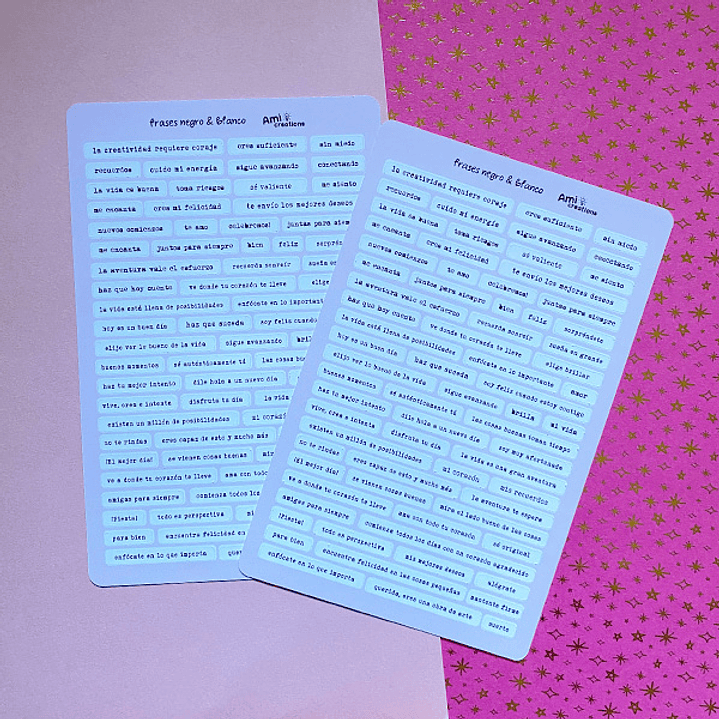 frases negro & blanco Ami creations
la creatividad requiere coraje eres suficiente sin miedo
recuerdos cuido mi energía sigue avanzando conectando
la vida es buena toma riesgos sé valiente me siento
me encanta eres mi felicidad te envío los mejores deseos
nuevos comienzos te amo celebremos! juntas para siem
me encanta juntos para siempre bien feliz sorprén
la aventura vale el esfuerzo recuerda sonreír sueña en
haz que hoy cuente ve donde tu corazón te lleve elige
la vida está llena de posibilidades enfócate en lo important
hoy es un buen día haz que suceda soy feliz cuando
elijo ver lo bueno de la vida sigue avanzando bril
buenos momentos sé auténticamente tú las cosas buen
haz tu mejor intento dile hola a un nuevo día
vive, crea e intente disfruta tu día la vida
existen un millón de posibilidades mi corazón
no te rindas eres capaz de esto y mucho más
¡El mejor día! se vienen cosas buenas
ve a donde tu corazón te lleve ama con todo
amigas para siempre comienza todos los
¡Fiesta! todo es perspectiva
para bien encuentra felicidad en
enfócate en lo que importa quer
frases negro & blanco Ami creations
la creatividad requiere coraje eres suficiente sin miedo
recuerdos cuido mi energía sigue avanzando conectando
la vida es buena toma riesgos sé valiente me siento
me encanta eres mi felicidad te envío los mejores deseos
nuevos comienzos te amo celebremos! juntas para siempre
me encanta juntos para siempre bien feliz sorpréndete
la aventura vale el esfuerzo recuerda sonreír sueña en grande
haz que hoy cuente ve donde tu corazón te lleve elige brillar
la vida está llena de posibilidades enfócate en lo importante amor
hoy es un buen día haz que suceda soy feliz cuando estoy contigo
elijo ver lo bueno de la vida sigue avanzando brilla mi vida
buenos momentos sé auténticamente tú las cosas buenas toman tiempo
haz tu mejor intento dile hola a un nuevo día soy muy afortunada
vive, crea e intente disfruta tu día la vida es una gran aventura
existen un millón de posibilidades mi corazón mis recuerdos
no te rindas eres capaz de esto y mucho más la aventura te espera
¡El mejor día! se vienen cosas buenas mira el lado bueno de las cosas
ve a donde tu corazón te lleve ama con todo tu corazón sé original
amigas para siempre comienza todos los días con un corazón agradecido
¡Fiesta! todo es perspectiva mis mejores deseos alégrate
para bien encuentra felicidad en las cosas pequeñas mantente firme
enfócate en lo que importa querida, eres una obra de arte suerte